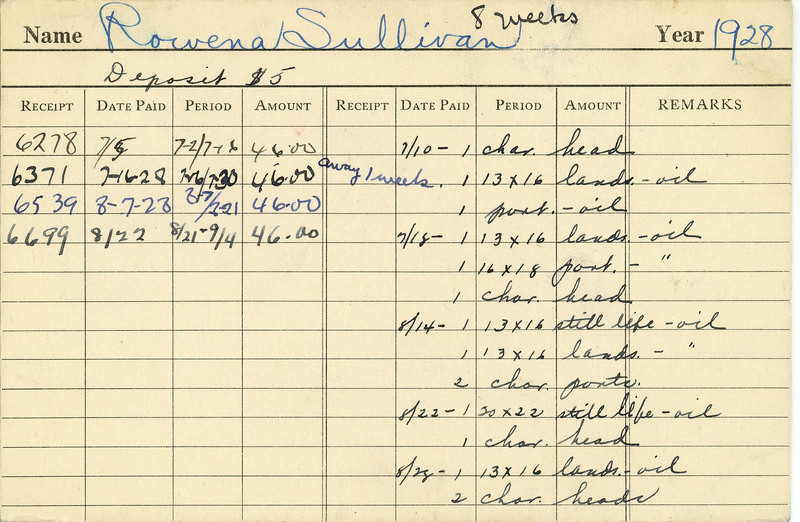 8 weeks
Name Rowena Sullivan Year 1928
Deposit $5
RECEIPT DATE PAID PERIOD AMOUNT RECEIPT DATE PAID PERIOD AMOUNT REMARKS
6278 7/5 7-2/7-16 46.00 7/10 - 1 char. head
6371 7-16-28 7-16/7-30 46.00 away 1 week. 1 13 x 16 lands. - oil
6539 8-7-28 8-7/8-21 46.00 1 port. - oil
6699 8/22 8/21-9/4 46.00 7/18 - 1 13 x 16 lands. - oil
1 16 x 18 port. - "
1 char. head
8/14 - 1 13 x 16 still life - oil
1 13 x 16 lands. - "
2 char. ports.
8/22 - 1 20 x 22 still life - oil
1 char. head
1 13 x 16 lands. - oil
2 char. heads